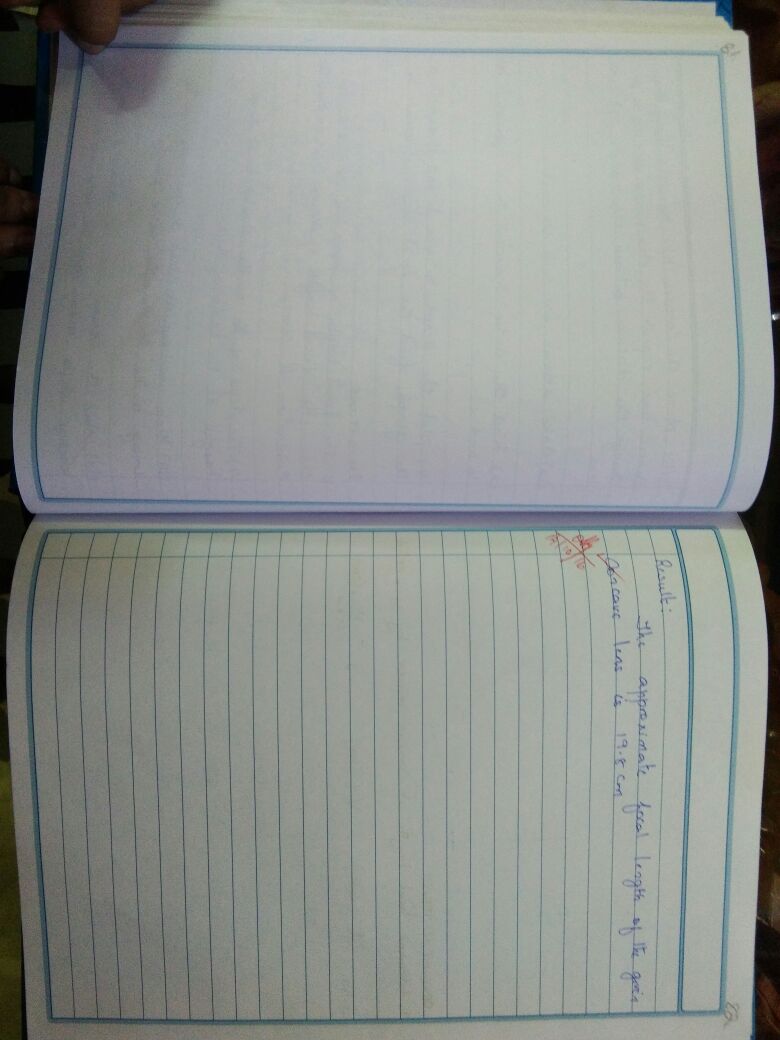 81
82
Result:
The approximate focal length of the given
concave lens is 19.8 cm